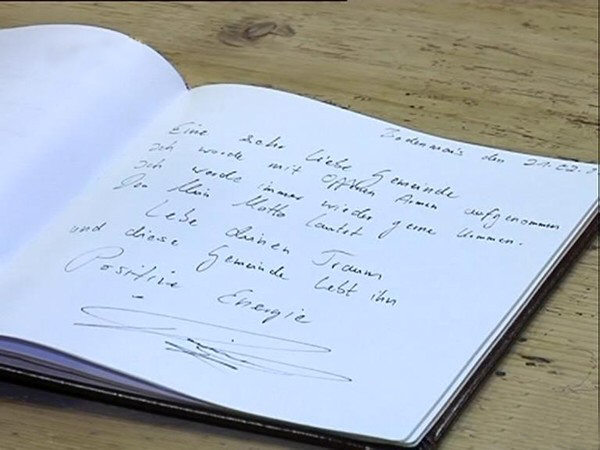 Bodenmais den 21.02.
Eine sehr liebe Gemeinde
Ich wurde mit offnen Armen aufgenommen
Ich werde immer wieder gerne kommen.
Da Mein Motto Lautet
Lebe deinen Traum
und diese Gemeinde lebt ihn
Positive Energie